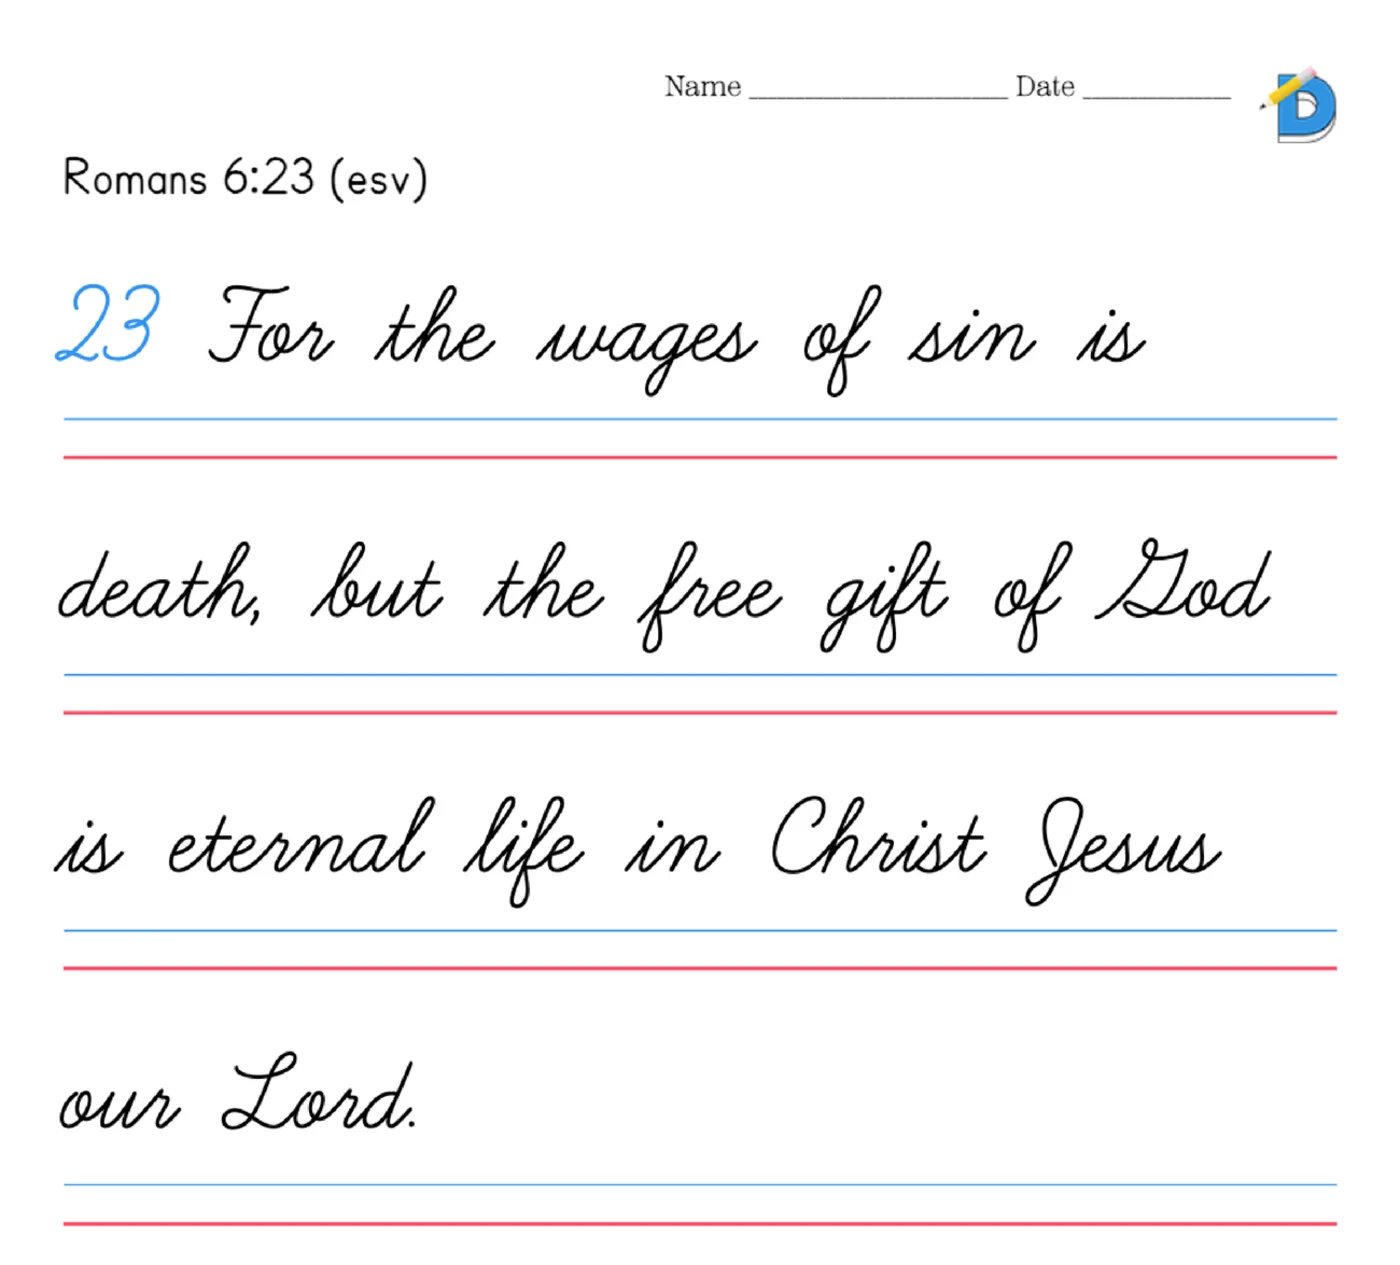 Name ____________________ Date ____________
D
Romans 6:23 (esv)
23 For the wages of sin is
death, but the free gift of God
is eternal life in Christ Jesus
our Lord.